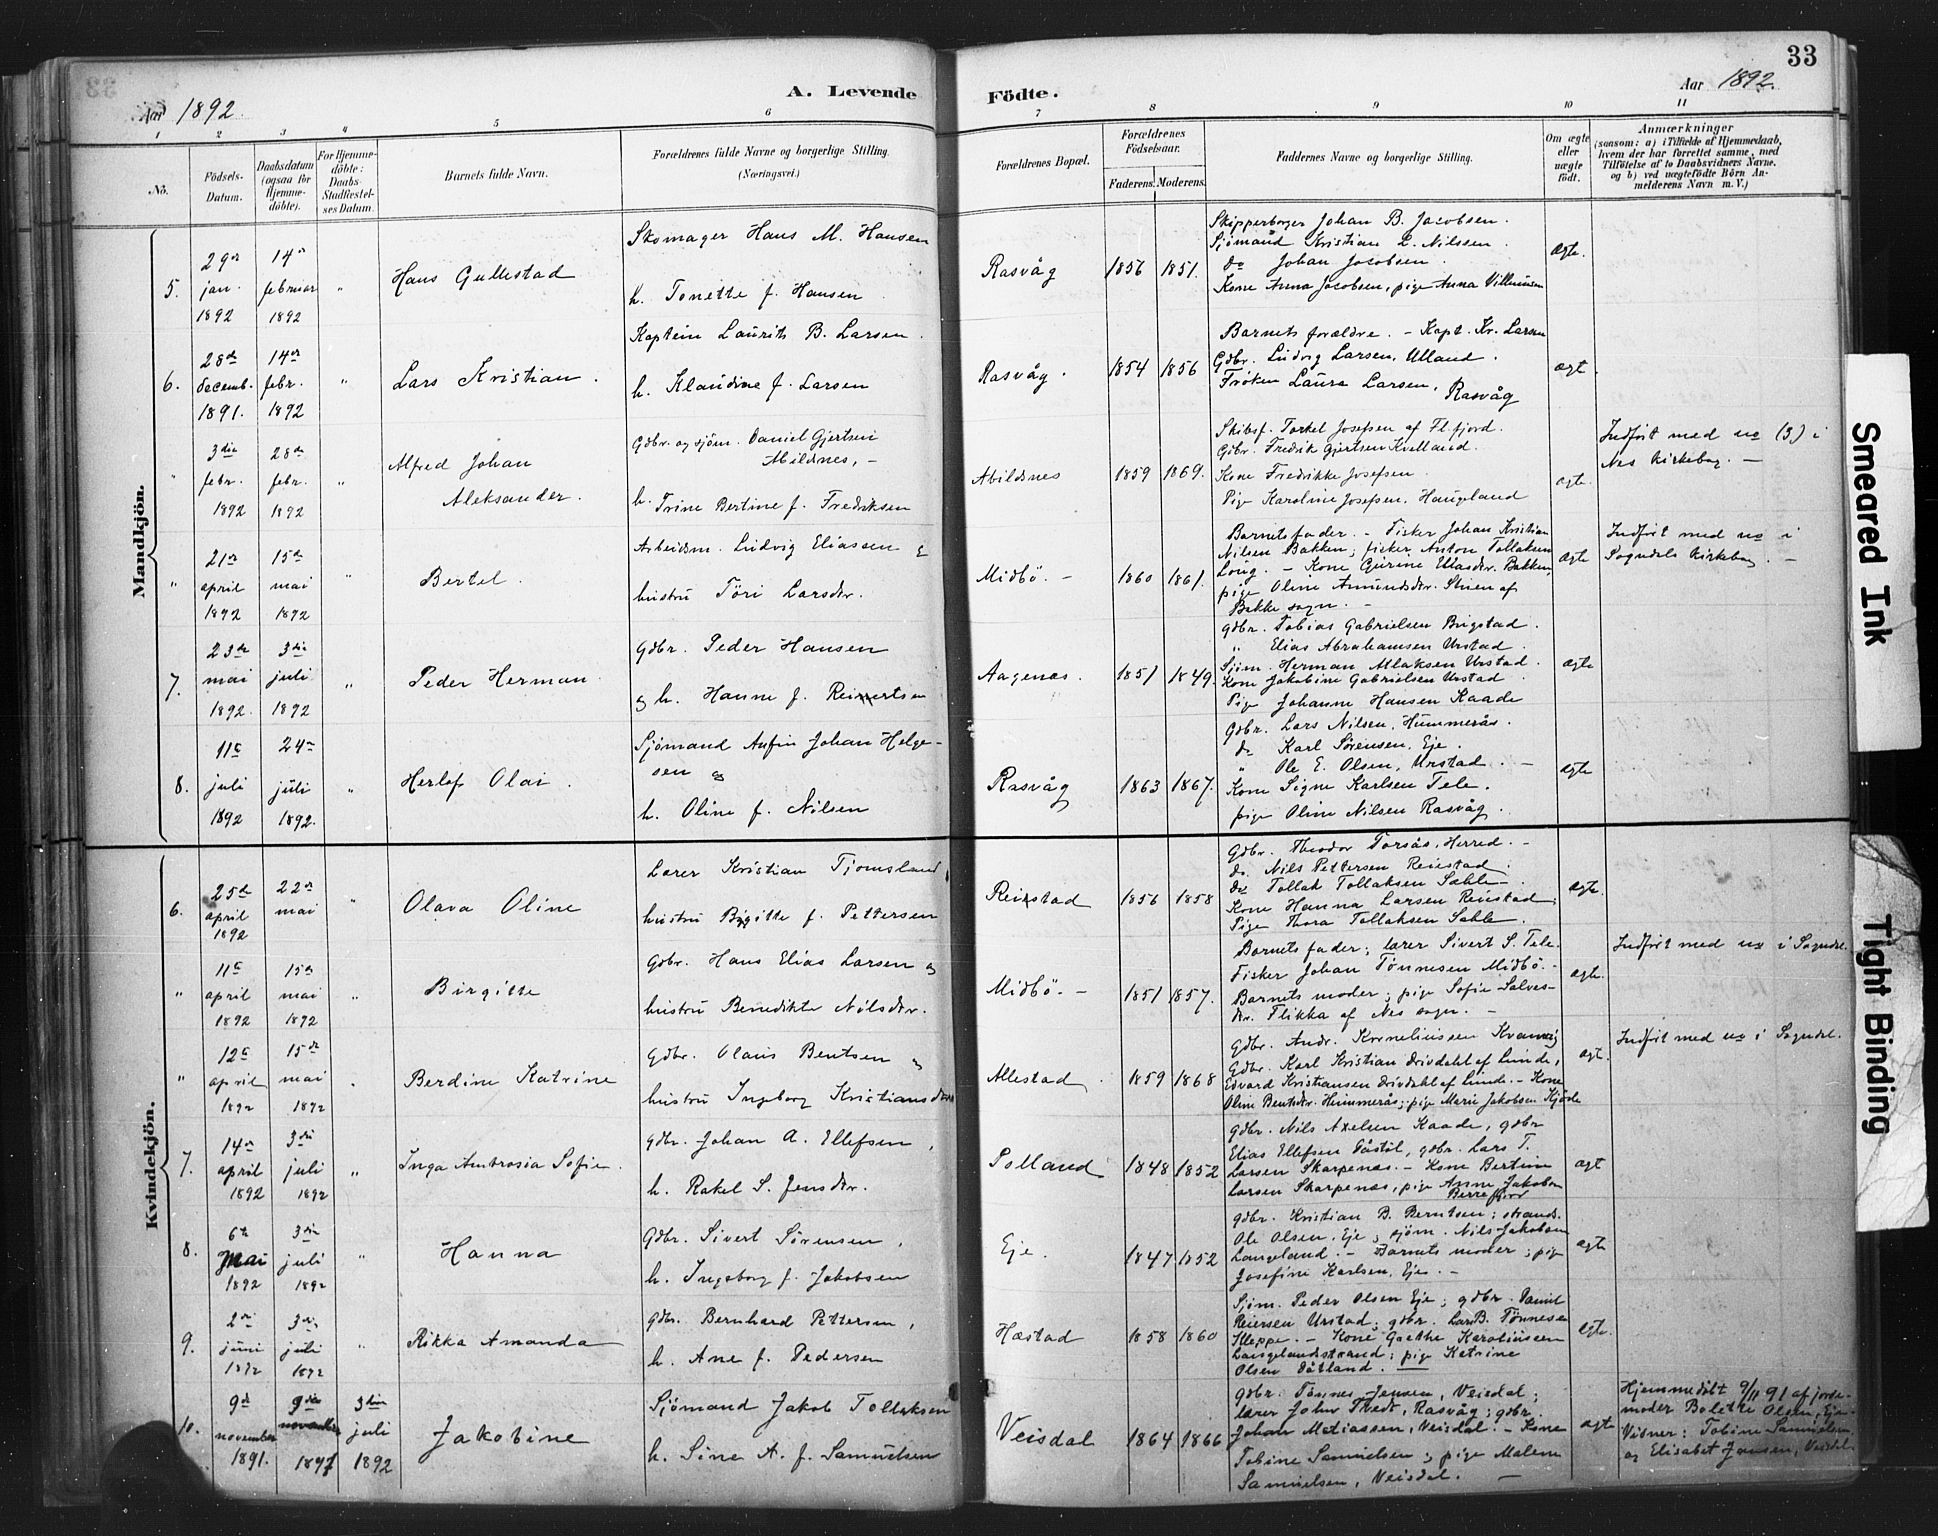 33
Aar 1892.
A. Levende
Födte.
Aar 1892.
1 2 3 4 5 6 7 8 9 10 11
No.
Födsels-
Datum.
Daabsdatum
(ogsaa for
Hjemme-
döbte).
For Hjemme-
döbte:
Daabs-
Stadfæstel-
ses Datum.
Barnets fulde Navn.
Forældrenes fulde Navne og borgerlige Stilling.
(Næringsvei.)
Forældrenes Bopæl.
Forældrenes
Födselsaar.
Faderens. Moderens.
Faddernes Navne og borgerlige Stilling.
Om ægte
eller
uægte
födt.
Anmærkninger
(saasom: a) i Tilfælde af Hjemmedaab,
hvem der har forrettet samme, med
Tilföielse af to Daabsvidners Navne.
og b) ved uægtefödte Börn An-
melderens Navn m. V.)
Mandkjön.
5.
29de
jan.
1892
14de
februar
1892
"
Hans Gullestad
Skomager Hans M. Hansen
h. Tonette f. Hansen
Rasvåg
1856 1851.
Skipperborger Johan B. Jacobsen.
Sjömand Kristian L. Nilssen.
do Johan Jacobsen.
Kone Anna Jacobsen, pige Anna Villumsen
ægte.
6.
28de
decemb.
1891.
14de
febr.
1892
"
Lars Kristian.
Kaptein Laurits B. Larsen.
h. Klaudine f. Larsen
Rasvåg.
1854 1856
Barnets forældre. - Kapt. Kr. Larsen
Gdbr. Ludvig Larsen, Ulland.
Fröken Laura Larsen,
Rasvåg
ægt.
"
3die
febr.
1892
28de
febr.
1892
"
Alfred Johan
Aleksander.
Gdbr. og sjöm. Daniel Gjertsen
Abildnes, -
h. Trine Bertine f. Fredriksen
Abildsnes
1859 1869.
Skibsf. Torkel Josefsen af Fl.fjord.
Gdbr. Fredrik Gjertsen Kvelland.
Kone Fredrikke Josefsen.
Pige Karoline Josefsen, Haugeland
ægte.
Indfört med no (3) i
Nes Kirkebog. -
"
21de
april
1892
15de
mai
1892
"
Bertel.
Arbeidsm. Ludvig Eliassen &
hustru Töri Larsdtr.
Midbö. -
1860 1861.
Barnets fader. - Fisker Johan Kristian
Nilsen Bakken; fisker Anton Tollaksen
Loug. - Kone Gurine Eliasdtr. Bakken,
pige Oline Amundsdtr. Stuen af
Bakke sogn. -
ægte
Indfört med no i
Sogndals Kirkebog. -
7.
23de
mai
1892.
3die
juli
1892
"
Peder Herman.
Gdbr. Peder Hansen
og h. Hanne f. Reinertsen
Aagenæs.
1851 1849.
Gdbr. Tobias Gabrielsen Brigstad.
" Elias Abrahamsen Urstad.
Sjöm. Herman Atlaksen Urstad.
Kone Jakobine Gabrielsen Urstad
Pige Johanne Hansen Kaade
ægte
8.
11te
juli
1892
24de
juli
1892.
"
Herlof Olai.
Sjömand Anfin Johan Helge-
sen og
h. Oline f. Nilsen
Rasvåg
1863 1867.
Gdbr. Lars Nilsen, Hummerås.
do Karl Sörensen, Eje.
" Ole E. Olsen, Urstad. -
Kone Signe Karlsen Tele.
pige Oline Nilsen Rasvåg.
ægte
Kvindekjön.
6.
25de
april
1892
22de
mai
"
Olava Oline
Lærer Kristian Tjomsland,
hustru Birgitte f. Pettersen
Reiestad
1856 1858
Gdbr. Theodor Torsås, Herred. -
do. Nils Pettersen Reiestad.
do Tollak Tollaksen Sahle -
Kone Hanna Larsen Reiestad,
Pige Thora Tollaksen Sahle.
ægte.
"
11te
april
1892
15de
mai
1892
"
Birgitte
Gdbr. Hans Elias Larsen og
hustru Benedikte Nilsdtr.
Midbö. -
1851 1857.
Barnets fader; lærer Sivert S. Tele.
Fisker Johan Tönnesen Midbö. -
Barnets moder; pige Sofie Salves-
dtr. Flikka af Nes sogn. -
ægte.
Indfört med no i Sogndal.
"
12te
april
1892
15de
mai
1892
"
Berdine Katrine
Gdbr. Olaus Bentsen og
hustru Ingeborg Kristiansdtr.
Allestad.
1859 1868
Gdbr. Andr. Korneliussen Kvanvig
Gdbr. Karl Kristian Drivdahl af Lunde,
Edvard Kristiansen Drivdahl af Lunde. - Kone
Oline Bentsdtr. Hummerås; pige Marie Jakobsen Kjöde
ægt.
Indfört med no i Sogndal.
7.
14de
april
1892
3die
juli
1892
"
Inga Ambrosia Sofie.
Gdbr. Johan A. Ellefsen,
h. Rakel S. Jensdtr.
Polland
1848 1852
Gdbr. Nils Axelsen Kaade, gdbr
Elias Ellefsen Påstöl, gdbr. Lars T.
Larsen Skarpenæs. - Kone Bertine
Larsen Skarpenæs, pige Anne Jakobsen
Berrefjord
ægt
8.
6te
Mai
1892
3die
juli
1892
"
Hanna
Gdbr. Sivert Sörensen,
h. Ingeborg f. Jakobsen
Eje.
1847 1852
Gdbr. Kristian B. Berntsen; strands.
Ole Olsen, Eje; sjöm. Nils Jakobsen
Langeland. - Barnets moder; pige
Josefine Karlsen, Eje. -
ægte
9.
2den
juni
1892
3die
juli
1892
"
Rikka Amanda
Gdbr. Bernhard Pettersen,
h. Ane f. Pedersen
Hæstad
1858 1860
Sjöm. Peder Olsen Eje; gdbr. Daniel
Reiersen Urstad; gdbr. Lars B. Tönnesen
Kleppe. - Kone Gæthe Karoliussen
Langelandsstrand; pige Katrine
Olsen Dåtland. -
ægte.
10.
9de
november
1891.
9de
november
1891
3die
juli
1892
Jakobine
Sjömand Jakob Tollaksen
h. Sine A. f. Samuelsen
Veisdal
1864 1866
Gdbr. Tönnes Jensen, Veisdal;
lærer John Tvedt, Rasvåg; gdbr.
Johan Matiassen, Veisdal. - Kone
Tobine Samuelsen; pige Malene
Samuelsen, Veisdal. -
ægt
Hjemmedöbt 9/11 91 af jorde-
moder Bolette Olsen, Eje.
Vidner: Tobine Samuelsen
og Elisabet Jensen, Veisdal.
Smeared Ink
Tight Binding